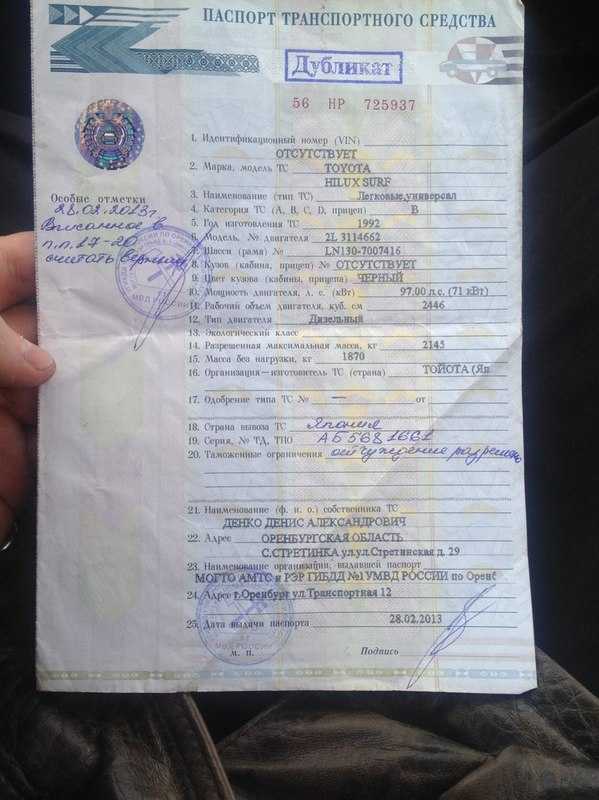 ПАСПОРТ ТРАНСПОРТНОГО СРЕДСТВА
Дубликат
56 НР 725937
1. Идентификационный номер (VIN)
ОТСУТСТВУЕТ
2. Марка, модель ТС TOYOTA
HILUX SURF
Особые отметки
28.02.2013г
Вписанное в
п.п.17-20
считать верным
МВД РОССИИ
3. Наименование (тип ТС) Легковые,универсал
4. Категория ТС (A, B, C, D, прицеп) B
5. Год изготовления ТС 1992
6. Модель, № двигателя 2L 3114662
7. Шасси (рама) № LN130-7007416
8. Кузов (кабина, прицеп) № ОТСУТСТВУЕТ
9. Цвет кузова (кабины, прицепа) ЧЕРНЫЙ
10. Мощность двигателя, л. с. (кВт) 97.00 л.с. (71 кВт)
11. Рабочий объем двигателя, куб. см 2446
12. Тип двигателя Дизельный
13. Экологический класс
14. Разрешенная максимальная масса, кг 2145
15. Масса без нагрузки, кг 1870
16. Организация—изготовитель ТС (страна) ТОЙОТА (Яп
17. Одобрение типа ТС № — от
18. Страна вывоза ТС Япония
19. Серия, № ТД, ТПО АБ5681661
20. Таможенные ограничения отчуждение разрешено
21. Наименование (ф. и. о.) собственника ТС
ДЕНКО ДЕНИС АЛЕКСАНДРОВИЧ
22. Адрес ОРЕНБУРГСКАЯ ОБЛАСТЬ
С.СТРЕТИНКА ул.ул.Стретинская д. 29
23. Наименование организации, выдавшей паспорт
МОГТО АМТС и РЭР ГИБДД №1 УМВД РОССИИ по Оренб
24. Адрес г.Оренбург ул.Транспортная 12
25. Дата выдачи паспорта 28.02.2013
МВД РОССИИ
М. П. Подпись